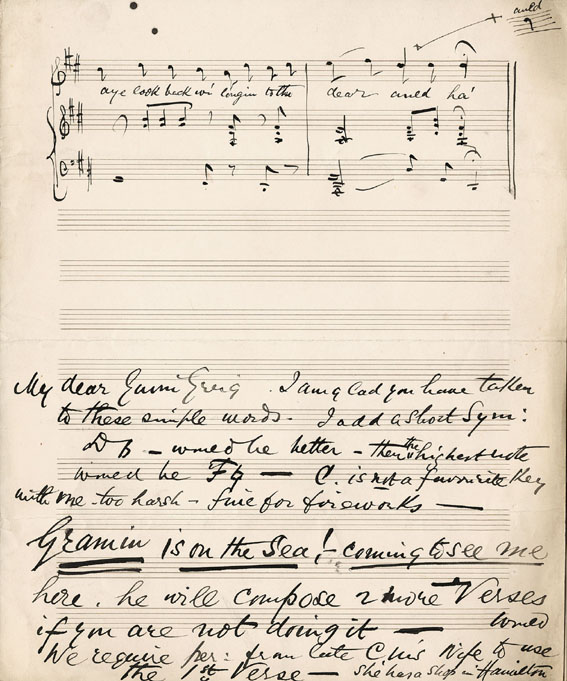 auld
aye look back wi' longin to the dear auld ha'
My dear Gavin Greig. I am glad you have taken
to these simple words. I add a short Sym:
D♭ – would be better – then the highest note
would be F♮ — C. is not a favourite key
with me – too harsh – fine for fireworks —
Gramin is on the Sea! – coming to see me
here. he will compose 2 more Verses
if you are not doing it — would
We require per: from late Chi's Wife to use
the 1st Verse — She has a shop in Hamilton